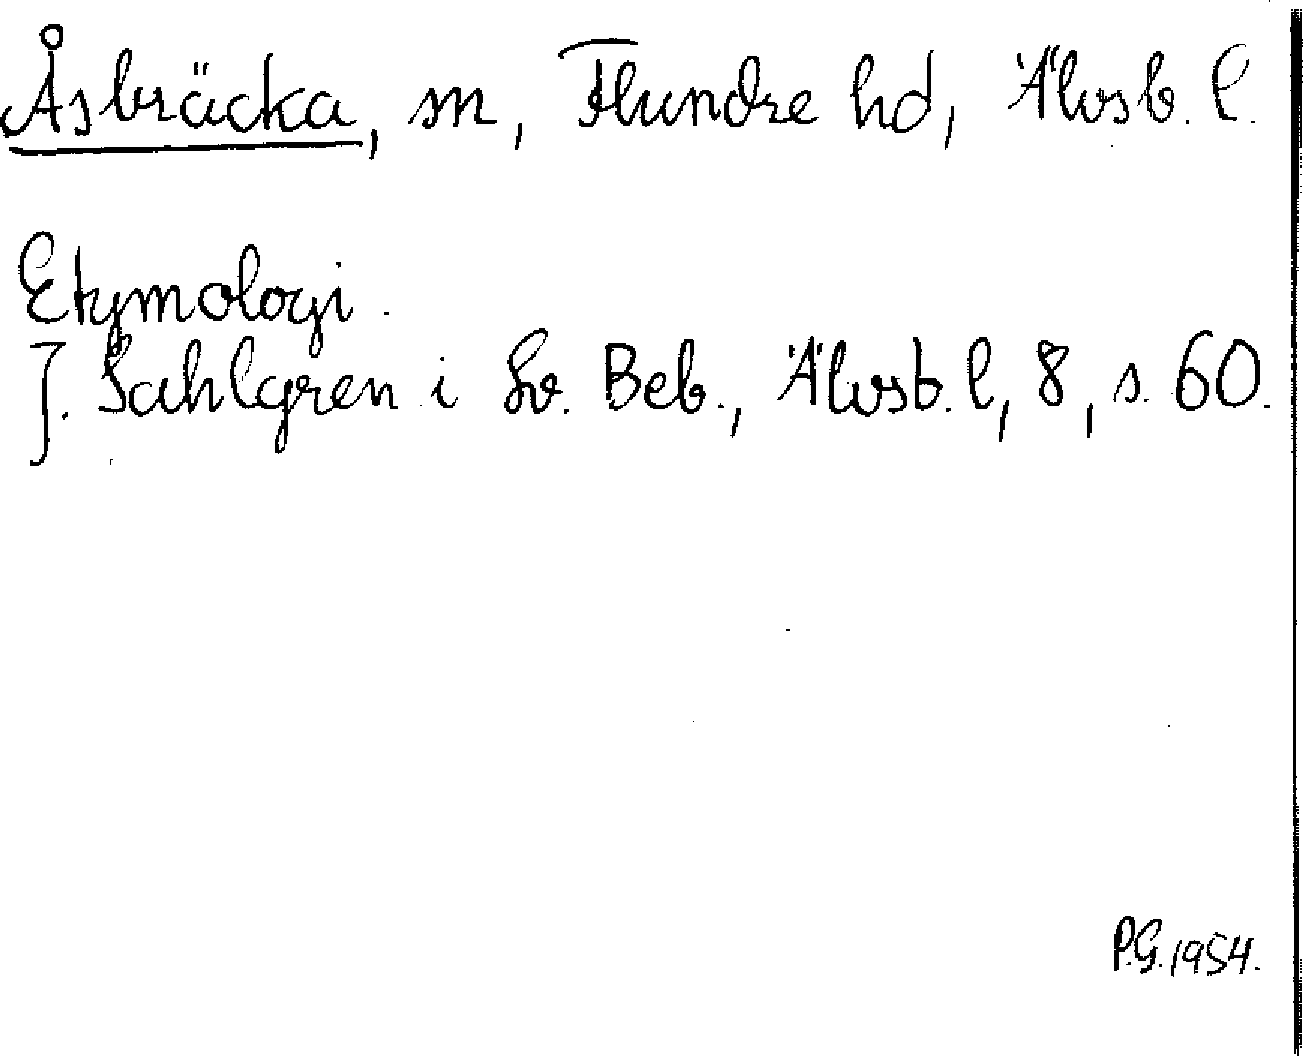 Åsbräcka, sn, Flundre hd, Älvsb. l.
Etymologi.
J. Sahlgren i Sv. Beb., Älvsb. l, 8, s. 60.
P.G. 1954.